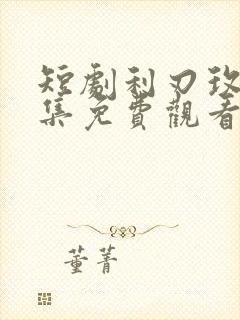 短劇利刃玫
集免費觀看
董菁